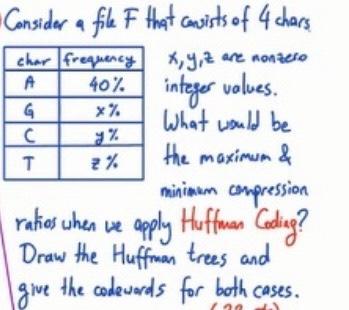 Consider a file F that consists of 4 chars
char frequency
A 40%
G x%
C y%
T z%
x,y,z are nonzero
integer values.
What would be
the maximum &
minimum compression
ratios when we apply Huffman Coding?
Draw the Huffman trees and
give the codewords for both cases.